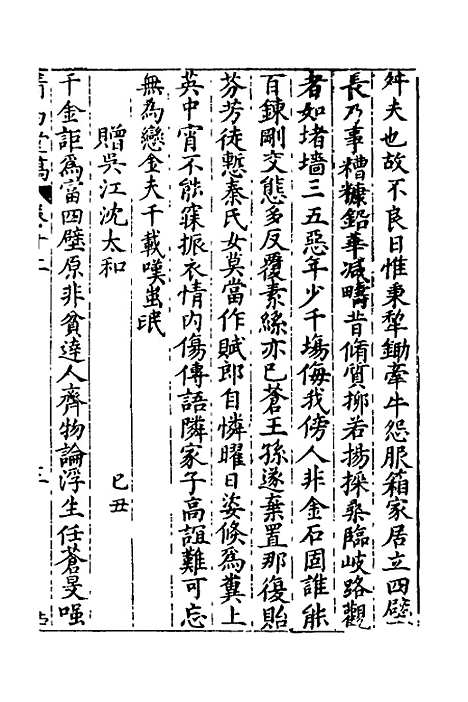 舛夫也故不良日惟秉犂鋤牽牛怨服箱家居立四壁
長乃事糟糠鉛華減疇昔脩質抑若揚採桑臨岐路觀
者如堵墻三五惡年少千場侮我傍人非金石固誰能
百鍊剛交態多反覆素絲亦已蒼王孫遂棄置那復貽
芬芳徒慙秦氏女莫當作賦郎自憐曜日姿倏為糞上
英中宵不能寐振衣情内傷傳語隣家子高誼難可忘
無為戀金夫千載嘆蚩氓
贈吳江沈太和 己丑
千金詎為富四壁原非貧達人齊物論浮生任蒼旻嗤
卷十二